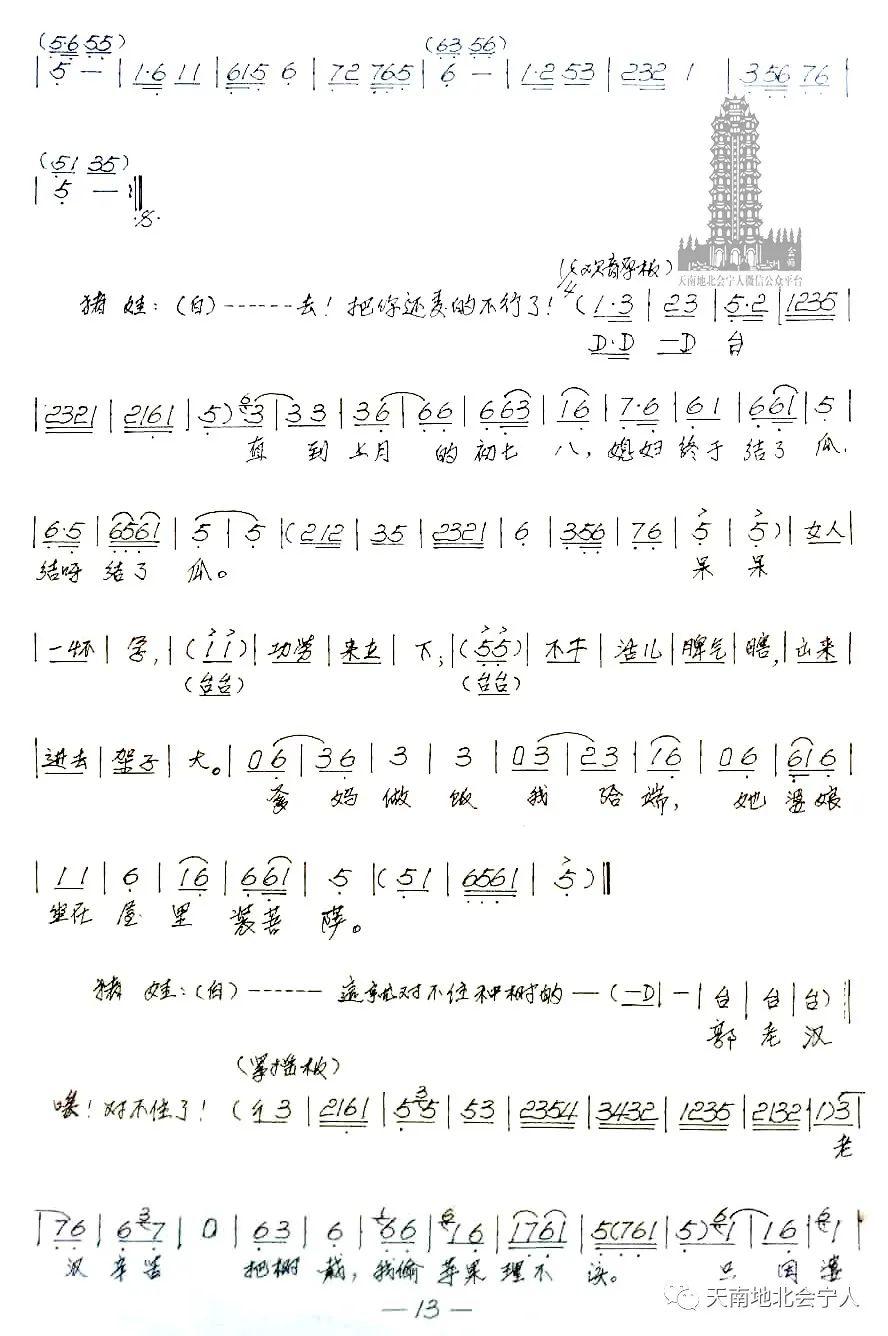 (5·6 55) (63 56)
| 5 — | 1·6 11 | 615 6 | 72 765 | 6 — | 1·2 53 | 232 1 | 356 76 |
(51 35)
| 5 — :||
会师
天南地北会宁人微信公众平台
猪娃：(白)------去！把你还麦的不行了！(1·3 | 23 | 5·2 | 1235 |
D·D 一D 台
| 2321 | 2161 | 5) 6 3 | 33 | 36 | 66 | 663 | 16 | 7·6 | 61 | 661 | 5 |
直到上月的初七八，媳妇终于结了瓜.
| 6·5 | 6561 | 5 | 5 | (212 | 35 | 2321 | 6 | 356 | 76 | 5 | 5) | 女人 |
结呀结了瓜。 呆呆
| 一怀 | 孕, | (11) | 功劳 | 来立 | 下; | (55) | 不干 | 活儿 | 脾气 | 瞎, | 出来 |
(台台) (台台)
| 进去 | 架子 | 大。 | 06 | 36 | 3 | 3 | 03 | 23 | 16 | 06 | 616 |
爹妈做饭我给端，她婆娘
| 11 | 6 | 16 | 661 | 5 | (51 | 6561 | 5) ||
坐在屋里装菩萨。
猪娃：(白)------这就对不住种树的—(一D | 一 | 台 | 台 | 台) ||
郭老汉
(紧拦板)
唉！对不住了！(个3 | 2161 | 5 3 5 | 53 | 2354 | 3432 | 1235 | 2132 | 1) 3 |
老
| 76 | 6 3 7 | 0 | 63 | 6 | 1 66 | 6 16 | 1761 | 5(761 | 5) 6 1 | 16 | 6 1 |
汉辛苦 把树栽，我偷苹果理不该。 只因婆
—13—
天南地北会宁人